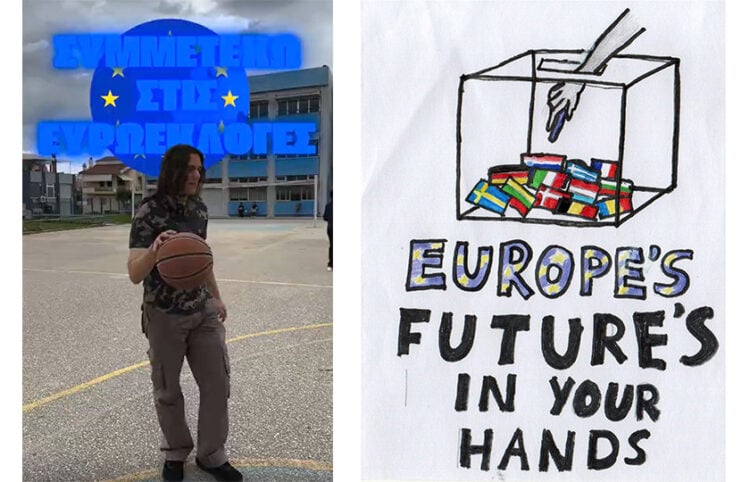 ΣΥΜΜΕΤΕΧΩ
ΣΤΙΣ
ΕΥΡΩΕΚΛΟΓΕΣ
EUROPE'S
FUTURE'S
IN YOUR
HANDS